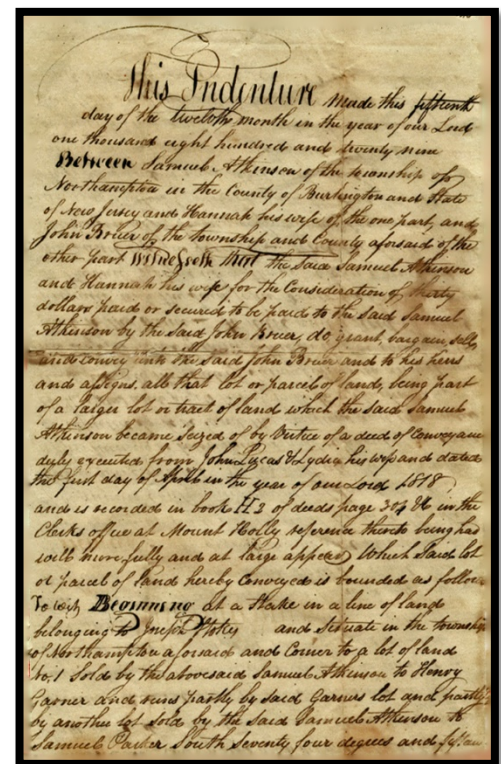 This Indenture Made this fifteenth
day of the twelfth month in the year of our Lord
one thousand eight hundred and twenty nine
Between Samuel Atkinson of the township of
Northampton in the County of Burlington and State
of New Jersey and Hannah his wife of the one part, and
John Brier of the township and County aforsaid of the
other part Witnesseth that the said Samuel Atkinson
and Hannah his wife for the Consideration of thirty
dollars paid or secured to be paid to the said Samuel
Atkinson by the said John Brier, do, grant, bargain, sell,
and convey unto the said John Brier and to his heirs
and assigns, all that lot or parcel of land, being part
of a larger lot or tract of land which the said Samuel
Atkinson became Seized of by Virtue of a deed of Conveyance
duly executed from John Lucas & Lydia his wife and dated
the first day of April in the year of our Lord 1818
and is recorded in book H2 of deeds page 304 &c in the
Clerks office at Mount Holly reference thereto being had
will more fully and at large appear, Which said lot
or parcel of land hereby Conveyed is bounded as follows
To wit, Beginning at a Stake in a line of land
belonging to Joseph and Situate in the township
of Northampton aforsaid and Corner to a lot of land
No. 1 Sold by the abovesaid Samuel Atkinson to Henry
Garner and runs partly by said Garners lot and partly
by another lot sold by the said Samuel Atkinson to
Samuel Parker South Seventy four degrees and fifteen